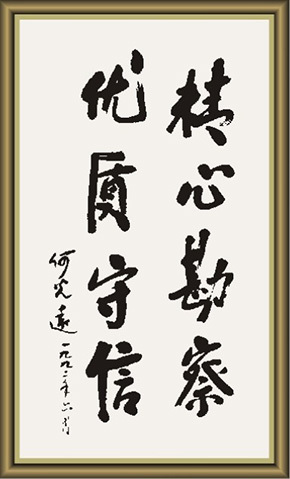 精心勘察
优质守信
何光远 一九九二年六月